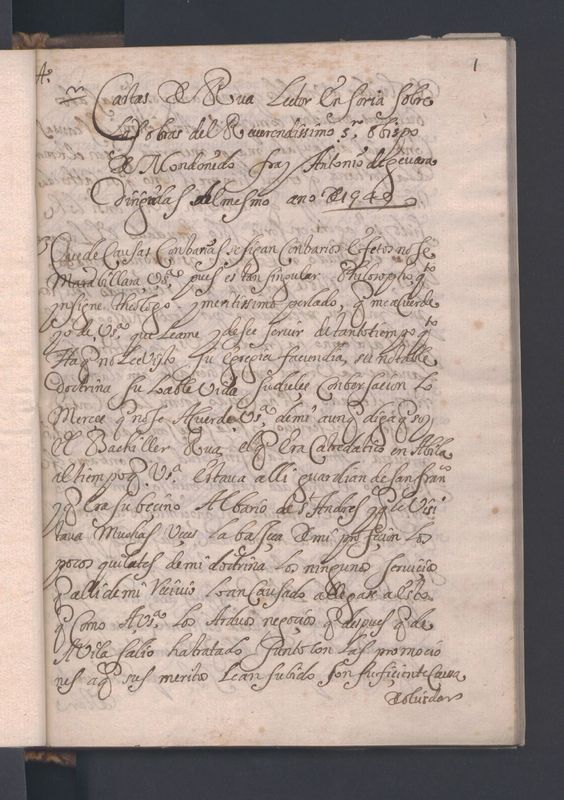 1
Cartas de Rua Lector en Soria sobre
las obras del Reverendissimo Sr. obispo
de Mondoñedo fray Antonio de guevara
Dirigidas al mesmo ano de 1540
Que de Causas Contrarias se sigan Contrarios Efetos no se
Marabillara Vsª. pues es tan singular philosopho qto
insigne theologo y meritissimo perlado, q me acuerde
yo de Vsª. que le ame y desee servir de tanto tiempo qto
ha q no le e visto su egregia facundia, su notable
doctrina su loable Vida su dulce Conbersacion lo
Merece q no se Acuerde Vsª. de mi aunq diga q soy
El Bachiller Rua el q Era Catedratico en Abila
al tiempo q Vsª. Estava alli guardian de san franco
y q Era su becino Al bario de St Andres y q le Visi
tava Muchas Veces la baxeça de mi profesion los
pocos quilates de mi doctrina los ningunos servicios
q alli de mi Recivio lo an Causado
q Como A Vsª. los Arduos negocios q despues q de
AVila salio ha tratado Junto con las promocio
nes a q sus meritos Le an subido son suficiente Causa
de olvidar